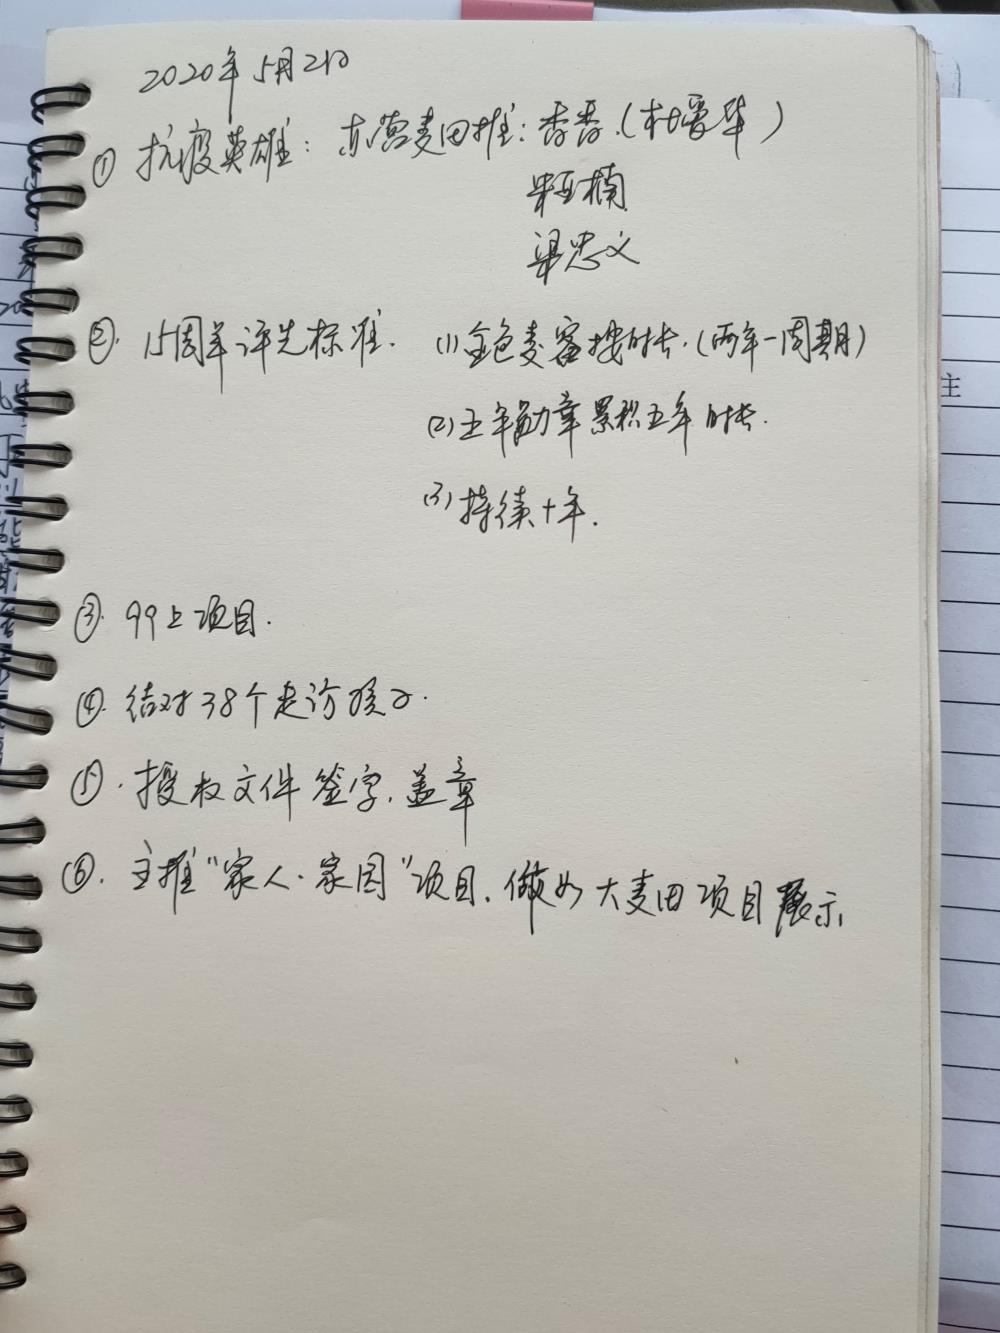 2020年5月2日
① 抗疫英雄：东营麦田推：香香.（杜爱华）
亚楠
梁忠义
②. 15周年评先标准. (1) 金色麦穗按时长.（两年一周期）
(2) 五年勋章累积五年时长.
(3) 持续十年.
③. 99上项目.
④. 结对38个走访孩子.
⑤. 授权文件签字.盖章
⑥. 主推“家人·家园”项目. 做好大麦田项目展示
主